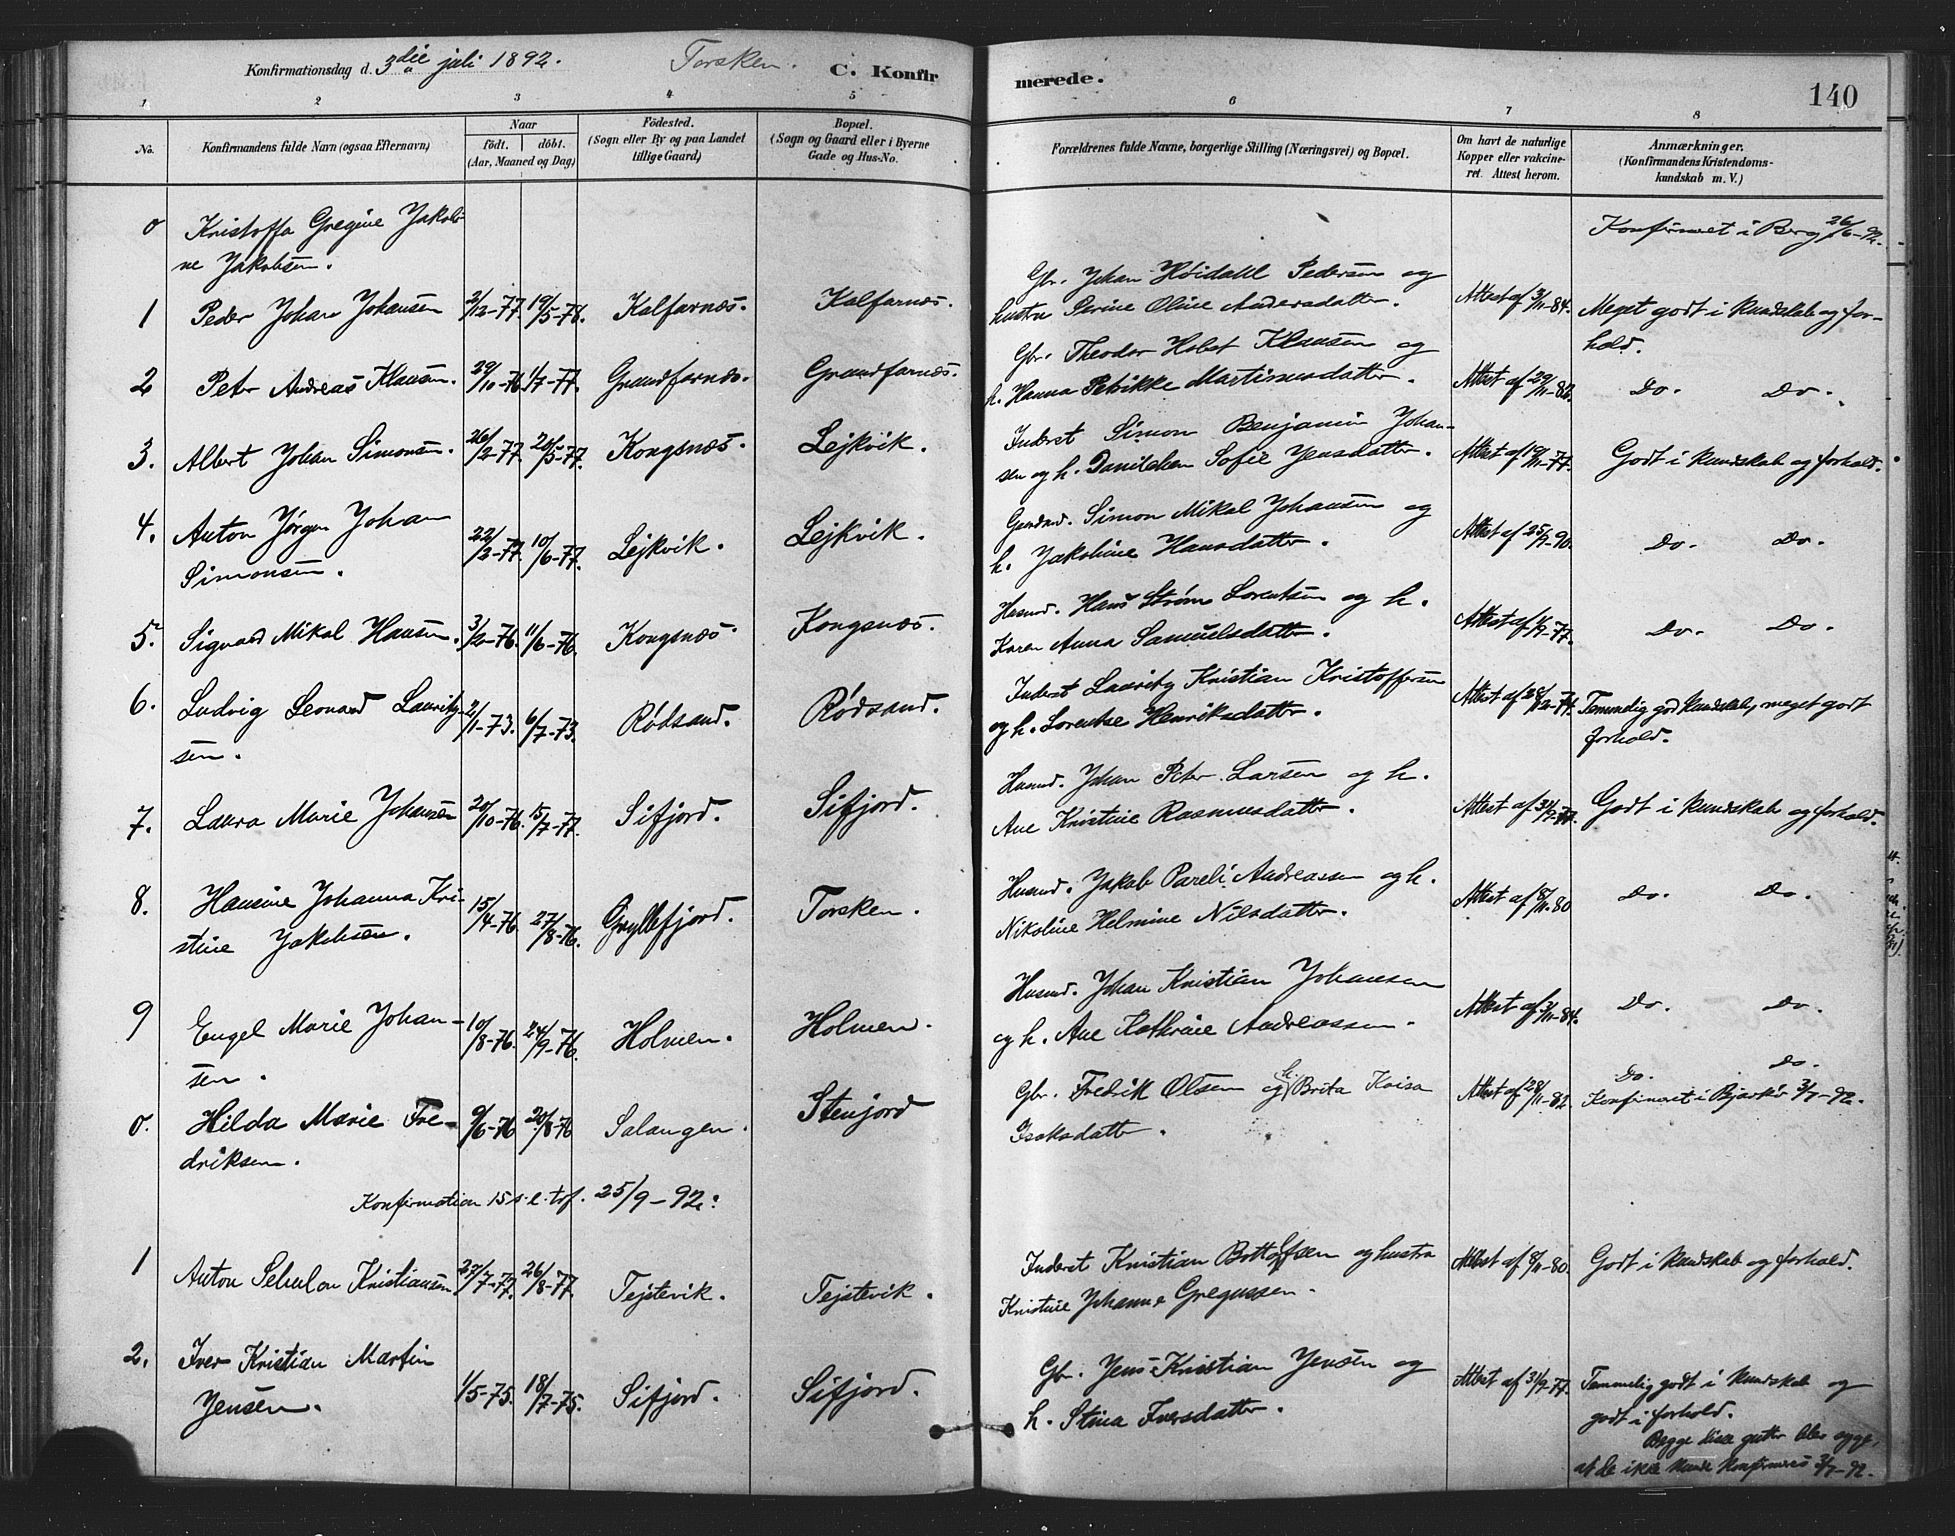 Konfirmationsdag d. 3die juli 1892. Torsken. C. Konfirmerede. 140
1 2 3 4 5 6 7 8
No. Konfirmandens fulde Navn (ogsaa Efternavn) Naar født. døbt. (Aar, Maaned og Dag) Fødested. (Sogn eller By og paa Landet tillige Gaard) Bopæl. (Sogn og Gaard eller i Byerne Gade og Hus-No. Forældrenes fulde Navne, borgerlige Stilling (Næringsvei) og Bopæl. Om havt de naturlige Kopper eller vakcineret. Attest herom. Anmærkninger. (Konfirmandens Kristendomskundskab m. V.)
0 Kristoffa Gregine Jakobi- Konfirmeret i Berg 26/6-92.
ne Jakobsen.
1 Peder Johan Johansen 2/12-77. 19/5-78. Kalfarnæs. Kalfarnæs. Gbr. Johan Høidahl Pedersen og Attest af 3/11-84. Meget godt i kundskab og for-
hustru Serine Oline Andersdatter. hold.
2 Peter Andreas Klausen. 29/10-76. 1/7-77. Grundfarnæs. Grundfarnæs. Gbr. Theodor Holst Klausen og Attest af 29/11-82. Do. Do.
h. Hanna Petrikke Martinusdatter.
3. Albert Johan Simonsen. 26/2-77. 20/5-77. Kongsnæs. Lejkvik. Inderst Simon Benjamin Johan- Attest af 19/11-77. Godt i kundskab og forhold.
sen og h. Danilchen Sofie Jensdatter.
4. Anton Jørgen Johan 22/2-77. 10/6-77. Lejkvik. Lejkvik. Simon Mikal Johansen og Attest af 25/9-90. Do. Do.
Simonsen. h. Jakobine Hansdatter.
5. Sigvard Mikal Hansen. 3/2-76. 11/6-76. Kongsnæs. Kongsnæs. Husmd. Hans Strøm Lorentsen og h. Attest af 1/9-77. Do. Do.
Karen Anna Samuelsdatter.
6. Ludvig Leonard Lauritz- 2/1-73. 6/7-73. Rødsand. Rødsand. Inderst Lauritz Kristian Kristoffersen Attest af 28/12-74. Temmelig god kundskab, meget godt
sen. og h. Lorentse Henriksdatter. forhold.
7. Laura Marie Johansen 20/10-76. 15/7-77. Sifjord. Sifjord. Husmd. Johan Peter Larsen og h. Attest af 31/9-77. Godt i kundskab og forhold.
Ane Kristine Rasmusdatter.
8. Hansine Johanna Kri- 15/4-76. 27/8-76. Gryllefjord. Torsken. Husmd. Jakob Pareli Andreassen og h. Attest af 8/11-80 Do. Do.
stine Jakobsen. Nikoline Helmine Nilsdatter.
9 Engel Marie Johan- 10/8-76. 24/9-76. Holmen. Holmen. Husmd. Johan Kristian Johansen Attest af 3/11-84. Do. Do.
sen. og h. Ane Kathrine Andreassen.
Do. Do.
0. Hilda Marie Fre- 9/6-76 20/8-76 Salangen. Stenjord Gbr. Fredrik Olsen og h. Brita Kaisa Attest af 28/11-82. Konfirmeret i Bjarkø 3/7-92.
driksen. Isaksdatter.
Konfirmation 15 s. e. tref. 25/9-92:
1 Anton Sebulon Kristiansen 27/7-77. 26/8-77. Tejstevik. Tejstevik. Inderst Kristian Bottolfsen og hustru Attest af 8/11-80. Godt i kundskab og forhold.
Kristine Johanne Gregussen.
2. Iver Kristian Martin 1/5-75. 18/7-75. Sifjord. Sifjord. Gbr. Jens Kristian Jensen og Attest af 31/9-77. Temmelig godt i kundskab og
Jensen. h. Stina Iversdatter. godt i forhold.
Begge disse gutter blev syge,
at de ikke kunde konfirmeres 3/7-92.